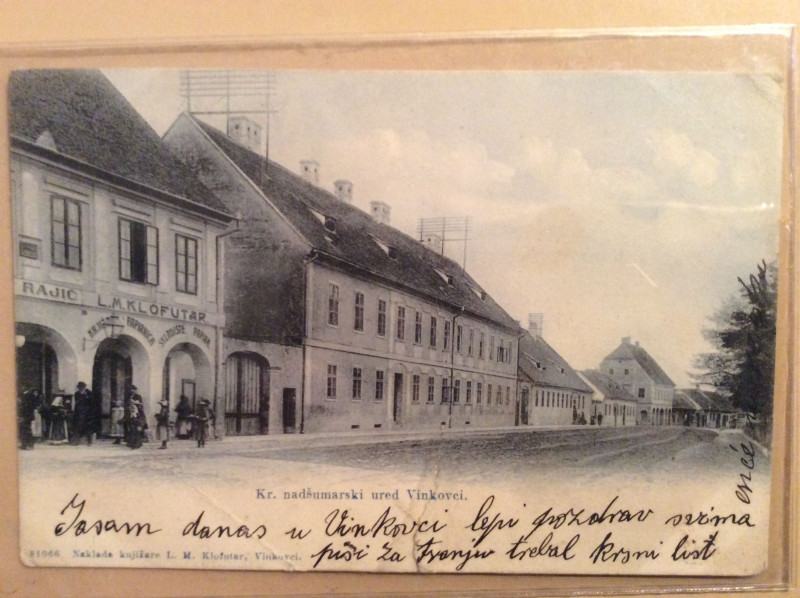 RAJIĆ
L.M. KLOFUTAR
SKLADIŠTE PAPIRA
Kr. nadšumarski ured Vinkovci.
Jasam danas u Vinkovci lepi pozdrav svima
piši za Franju trebal krsni list
81066 Naklada knjižare L. M. Klofutar, Vinkovci.